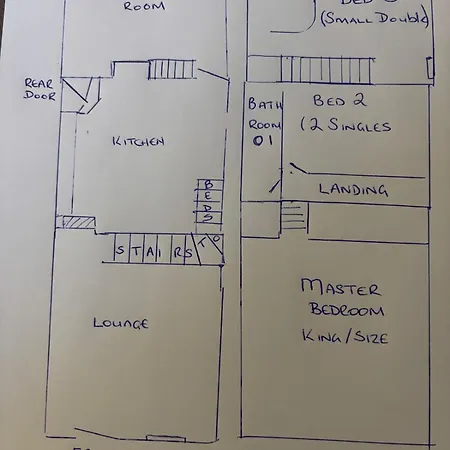 ROOM
REAR
DOOR
KITCHEN
STAIRS
TO
BEDS
LOUNGE
(SMALL DOUBLE)
BATH
ROOM
01
BED 2
(2 SINGLES
LANDING
MASTER
BEDROOM
KING/SIZE